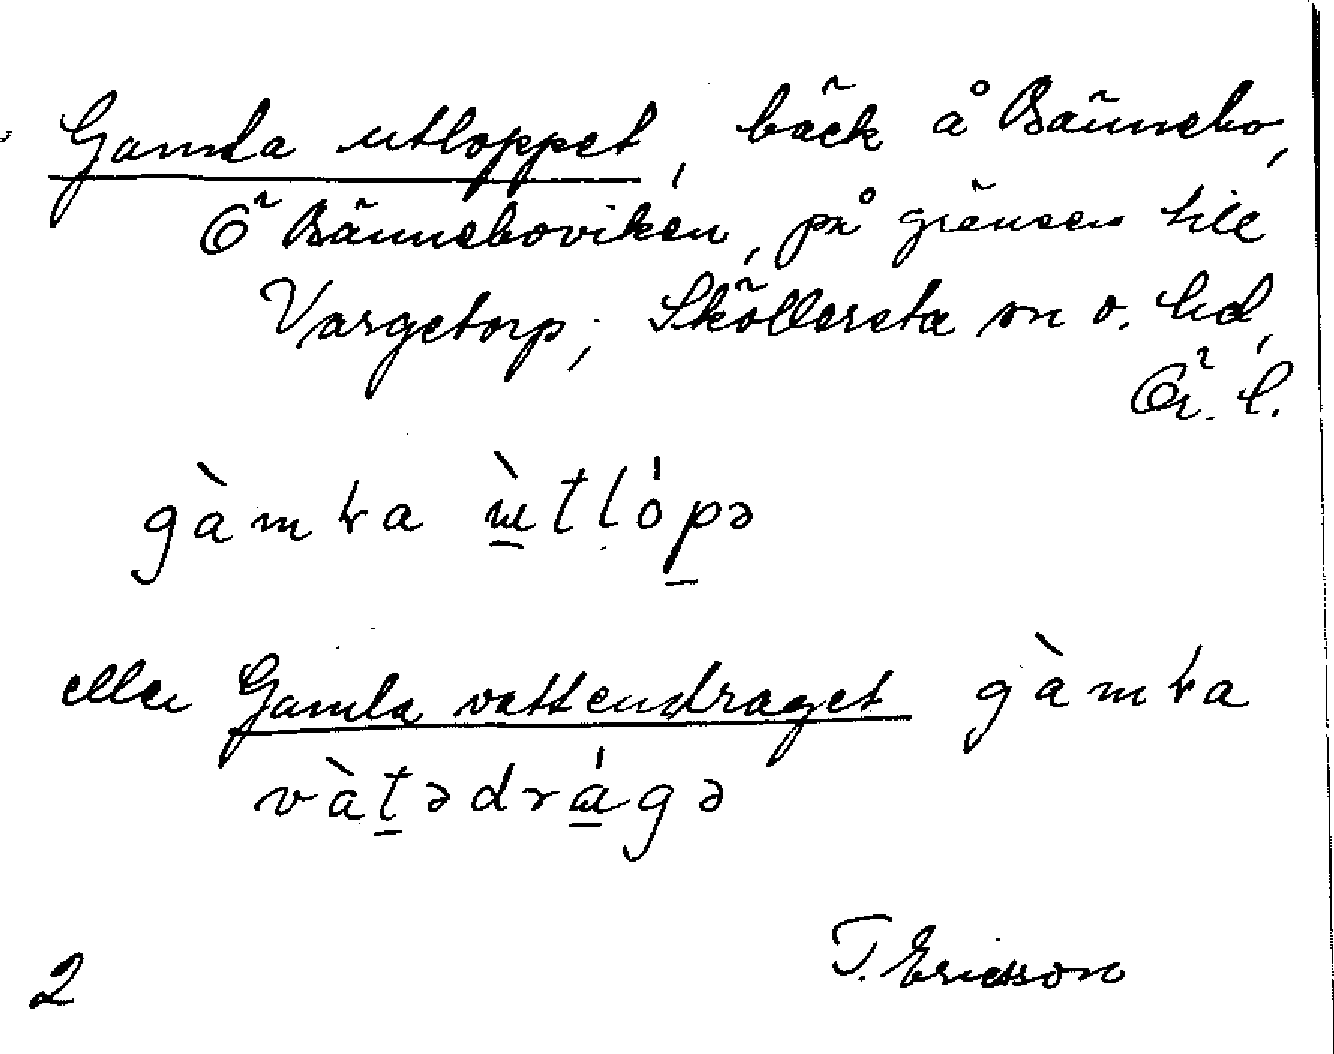 Gamla utloppet, bäck å Bännebo,
Ö Bänneboviken, på gränsen till
Vargetorp; Sköllersta sn o. hd,
Ör. l.
gàmɫa ɯ̲̀tḷópə
eller Gamla vattendraget gàmɫa
vàt̲ədrɑ̲́gə
T. Ericsson
2